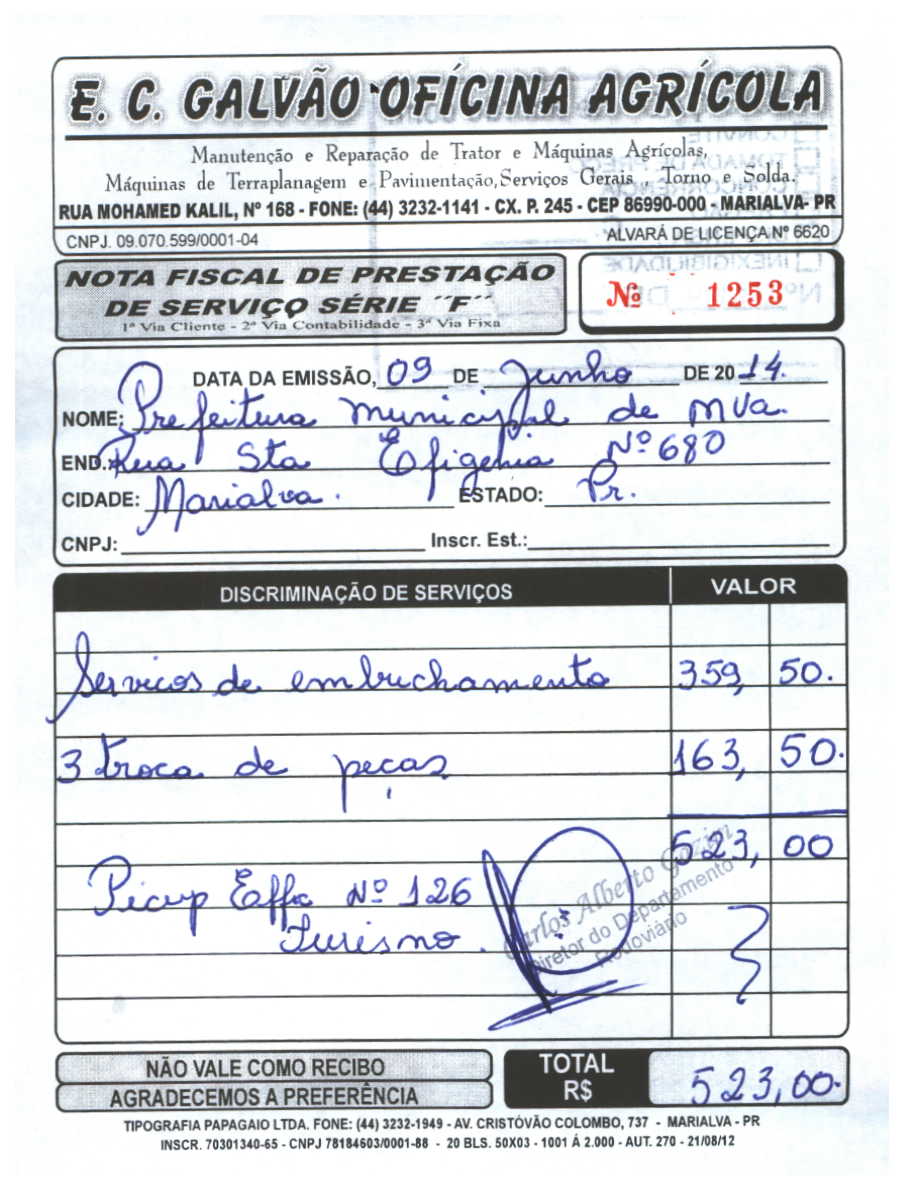 E. C. GALVÃO OFÍCINA AGRÍCOLA
Manutenção e Reparação de Trator e Máquinas Agrícolas,
Máquinas de Terraplanagem e Pavimentação, Serviços Gerais Torno e Solda.
RUA MOHAMED KALIL, Nº 168 - FONE: (44) 3232-1141 - CX. P. 245 - CEP 86990-000 - MARIALVA- PR
CNPJ. 09.070.599/0001-04 ALVARÁ DE LICENÇA Nº 6620
NOTA FISCAL DE PRESTAÇÃO
DE SERVIÇO SÉRIE ´´F´´
1ª Via Cliente - 2ª Via Contabilidade - 3ª Via Fixa
Nº 1253
DATA DA EMISSÃO, 09 DE Junho DE 20 14.
NOME: Prefeitura municipal de mva.
END. Rua Sta Efigenia Nº 680
CIDADE: Marialva. ESTADO: Pr.
CNPJ: Inscr. Est.:
DISCRIMINAÇÃO DE SERVIÇOS VALOR
Servicos de embuchamento 359, 50.
3 troca de peças 163, 50.
523, 00
Picup Effa Nº 126
Turismo.
Carlos Alberto
Diretor do Departamento
Rodoviário
NÃO VALE COMO RECIBO
AGRADECEMOS A PREFERÊNCIA
TOTAL
R$ 523,00.
TIPOGRAFIA PAPAGAIO LTDA. FONE: (44) 3232-1949 - AV. CRISTÓVÃO COLOMBO, 737 - MARIALVA - PR
INSCR. 70301340-65 - CNPJ 78184603/0001-88 - 20 BLS. 50X03 - 1001 Á 2.000 - AUT. 270 - 21/08/12